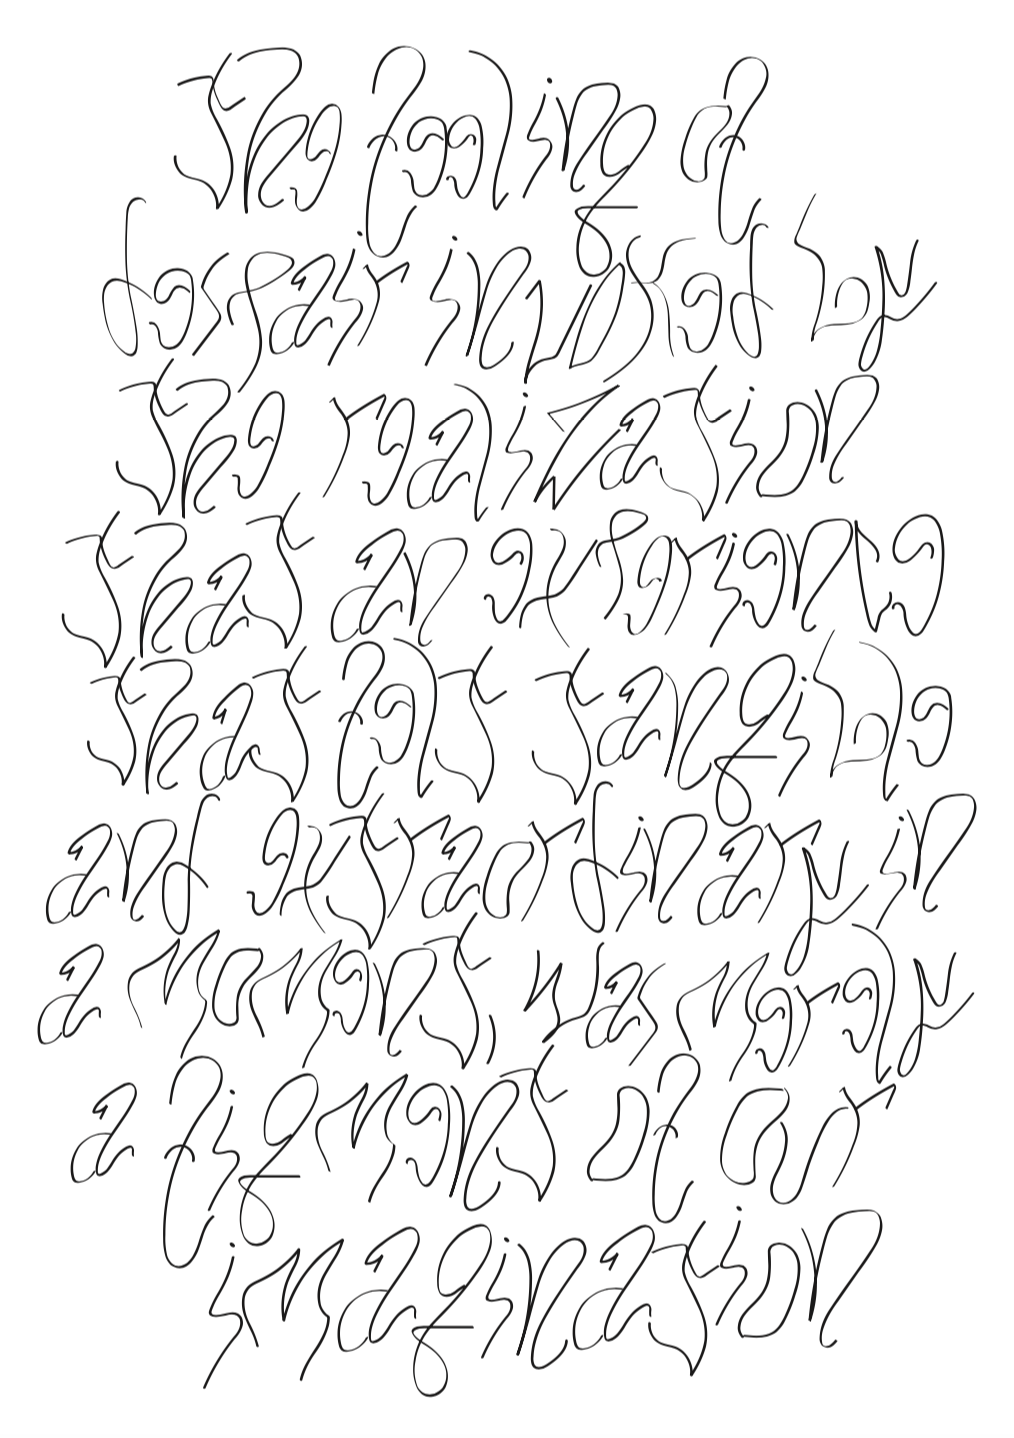 the feeling of
despair induced by
the realization
that an experience
that felt tangible
and extraordinary in
a moment, was merely
a figment of our
imagination